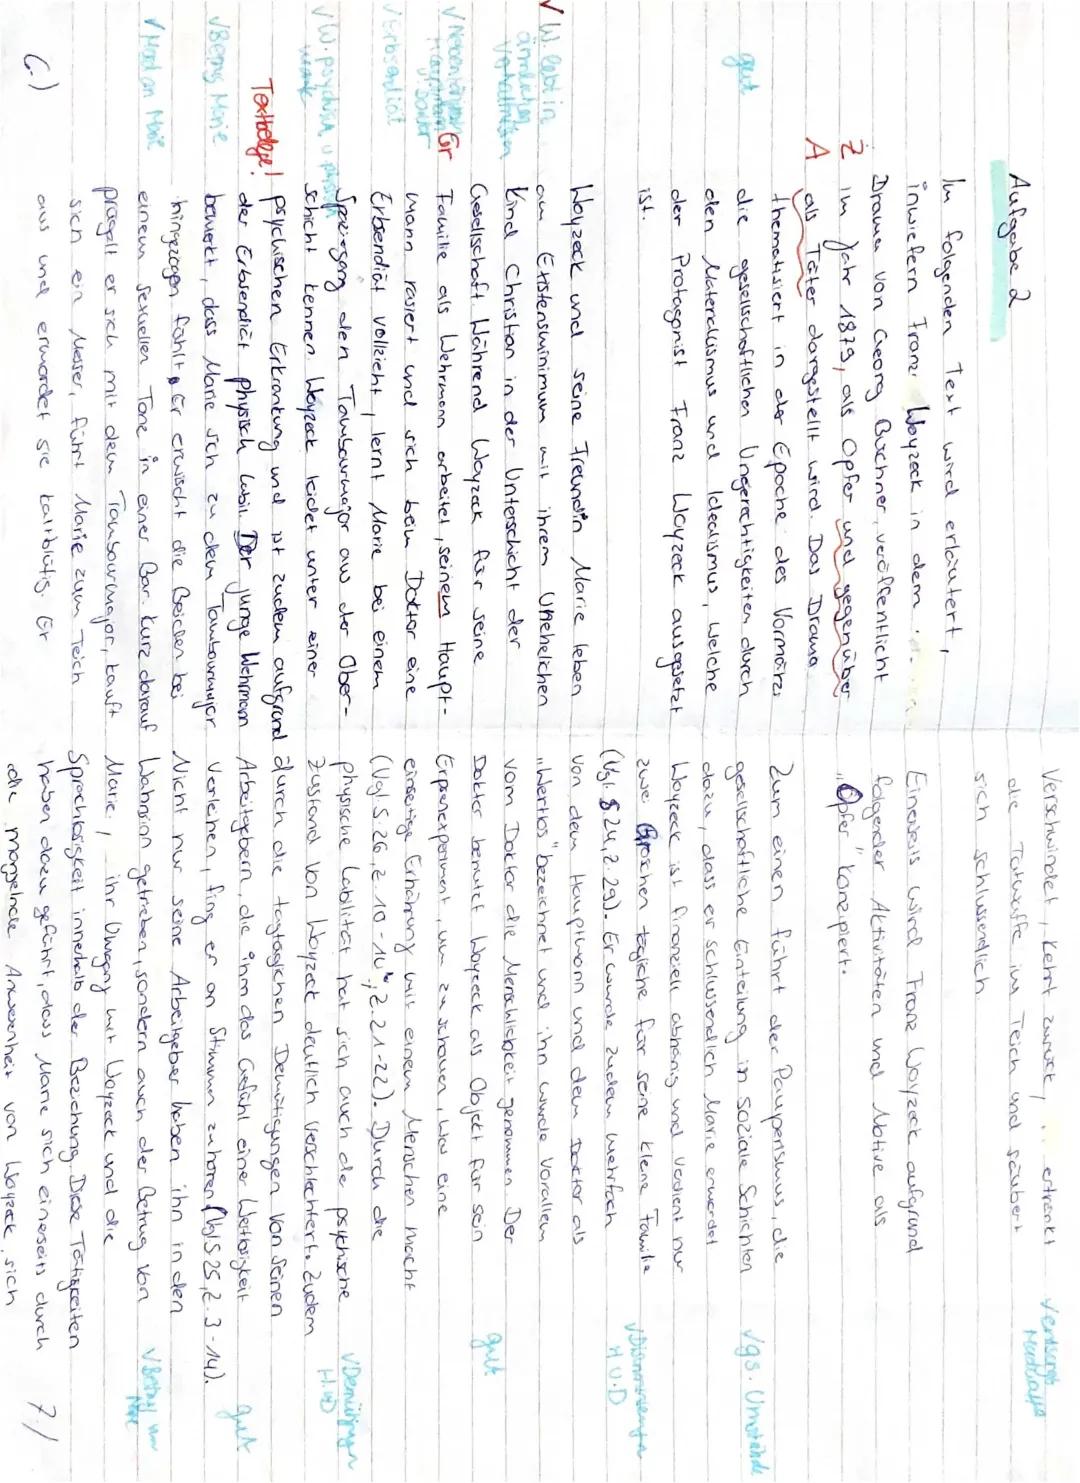 Aufgabe 2
Im folgenden Text wird erläutert,
inwiefern Franz Woyzeck in dem
Drama von Georg Büchner, veröffentlicht
Z im Jahr 1879, als Opfer und gegenüber
A als Täter dargestellt wird. Das Drama
thematisiert in der Epoche des Vormärzes
gut die gesellschaftlichen Ungerechtigkeiten durch
den Materialismus und Idealismus, welche
der Protagonist Franz Woyzeck ausgesetzt
ist.
Woyzeck und seine Freundin Marie leben
√ W. lebt in ärmlichen Verhältnissen
am Existensminimum mit ihrem Unehelichen
Kind Christian in der Unterschicht der
Gesellschaft Während Woyzeck für seine
Gr
Familie als Wehrmann arbeitet, seinem Haupt-
mann rasiert und sich beim Doktor eine
√ Erbsendiät
Erbsendiät vollzieht, lernt Marie bei einem
Spaziergang den Tambourmajor aus der Ober-
√ W. psychisch u physisch krank
schicht kennen. Woyzeck leidet unter einer
psychischen Erkrankung und ist zudem aufgrund
Textbelege!
der Erbsendiät physisch labil. Der junge Wehrmann
√ Betrug Marie
bemerkt, dass Marie sich zu dem Tambourmajor
hingezogen fühlt. Er erwischt die Beiden bei
√ Mord an Marie
einem sexuellen Tanz in einer Bar. Kurz darauf
prügelt er sich mit dem Tambourmajor, kauft
sich ein Messer, führt Marie zum Teich
aus und ermordet sie kaltblütig. Er
6.)
verschwindet, kehrt zurück, ertränkt
die Tatwaffe im Teich und säubert
sich schlussendlich.
Einerseits wird Franz Woyzeck aufgrund
folgender Aktivitäten und Motive als
"Opfer" konzipiert.
Zum einen führt der Pauperismus, die
gesellschaftliche Einteilung in soziale Schichten
√ gs. Umstände
dazu, dass er schlussendlich Marie ermordet
Woyzeck ist finanziell abhänig und verdient nur
zwei Groschen tägliche für seine kleine Familie
(Vgl. S 24, Z. 29). Er wurde zudem mehrfach
H U. D
von dem Hauptmann und dem Doktor als
"Wertlos" bezeichnet und ihn wurde vorallem
vom Doktor die Menschlichkeit genommen Der
Doktor benutzt Woyzeck als Objekt für sein
gut
Erbsenexperiment, um zu schauen, was eine
einseitige Ernährung mit einem Menschen macht
(Vgl S. 26, Z. 10 - Z. 21-22). Durch die
physische Labilität hat sich auch de psychische
√ Demütigungen
Zustand von Woyzeck deutlich verschlechtert. Zudem
durch die tagtäglichen Demütigungen von seinen
Arbeitgebern, die ihm das Gefühl einer Wertlosigkeit
gut
verleihen, fing er an Stimmen zu hören (Vgl S 25, Z. 3 - 14).
Nicht nur seine Arbeitgeber haben ihn in den
Wahnsinn getrieben, sondern auch der Betrug von
√ Betrug von
Marie, ihr Umgang mit Woyzeck und die
Sprachlosigkeit innerhalb der Beziehung. Diese Tätigkeiten
haben dazu geführt, dass Marie sich einerseits durch
die mangelnde Anwesenheit von Woyzeck, sich
7.)